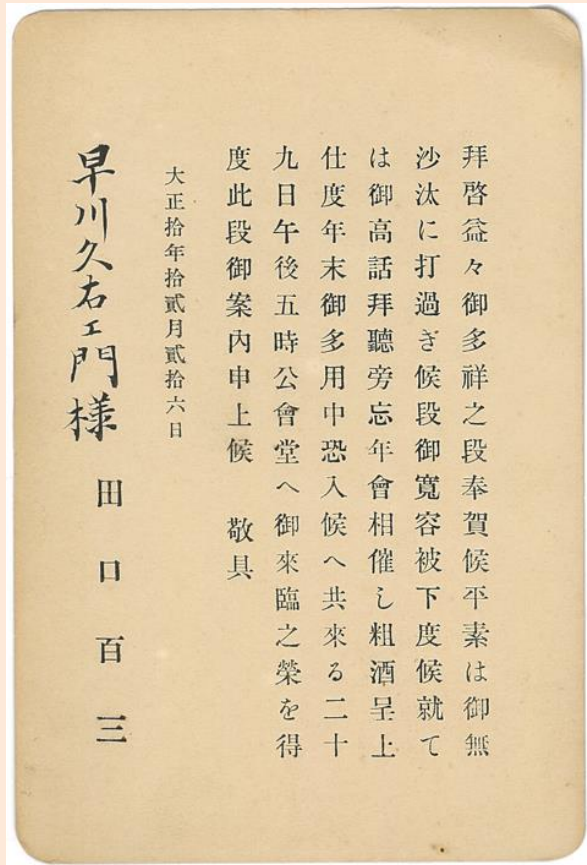 拜啓益々御多祥之段奉賀候平素は御無
沙汰に打過ぎ候段御寬容被下度候就て
は御高話拜聽旁忘年會相催し粗酒呈上
仕度年末御多用中恐入候へ共來る二十
九日午後五時公會堂へ御來臨之榮を得
度此段御案內申上候 敬具
大正拾年拾貳月貳拾六日
田口百三
早川久右エ門様